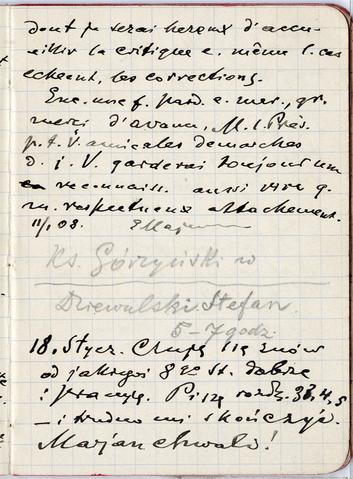 dont je serai hereux d'accu-
eillir la critique e. même l. cas
echeant, les corrections.
Enc. une f. pard. e. mer., gr.
merci d'avanc, M. l. Prés.
p. t. V. amicales demarches
d. j. V. garderai toujours um
reconnaiss. aussi vive q.
m. respectueux attachement.
11/1 08.
Ks. Górzyński w
Dziewulski Stefan
5-7 godz.
18. Stycz. Czuję się znów
od jakiegoś 8 st. dobrze
i pracuję. Piszę rozdz. 3, 4, 5
– i trudno mi skończyć.
Marjan chwali!